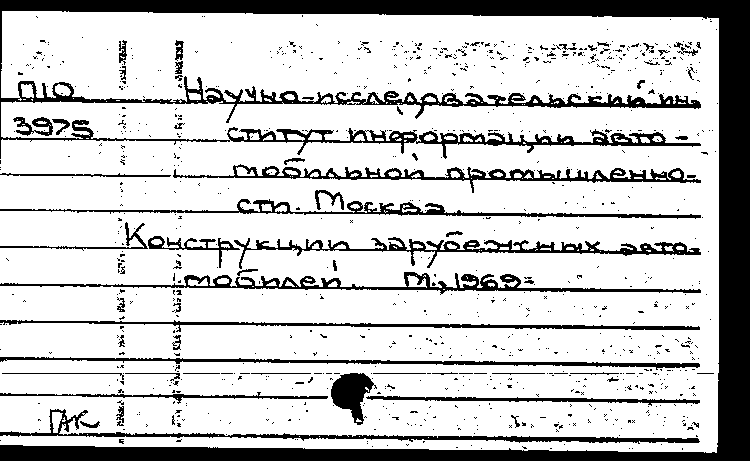 П10 Научно-исследовательский ин-
3975 ститут информации авто-
мобильной промышленно-
сти. Москва.
Конструкции зарубежных авто-
мобилей. М., 1969-
ГАК